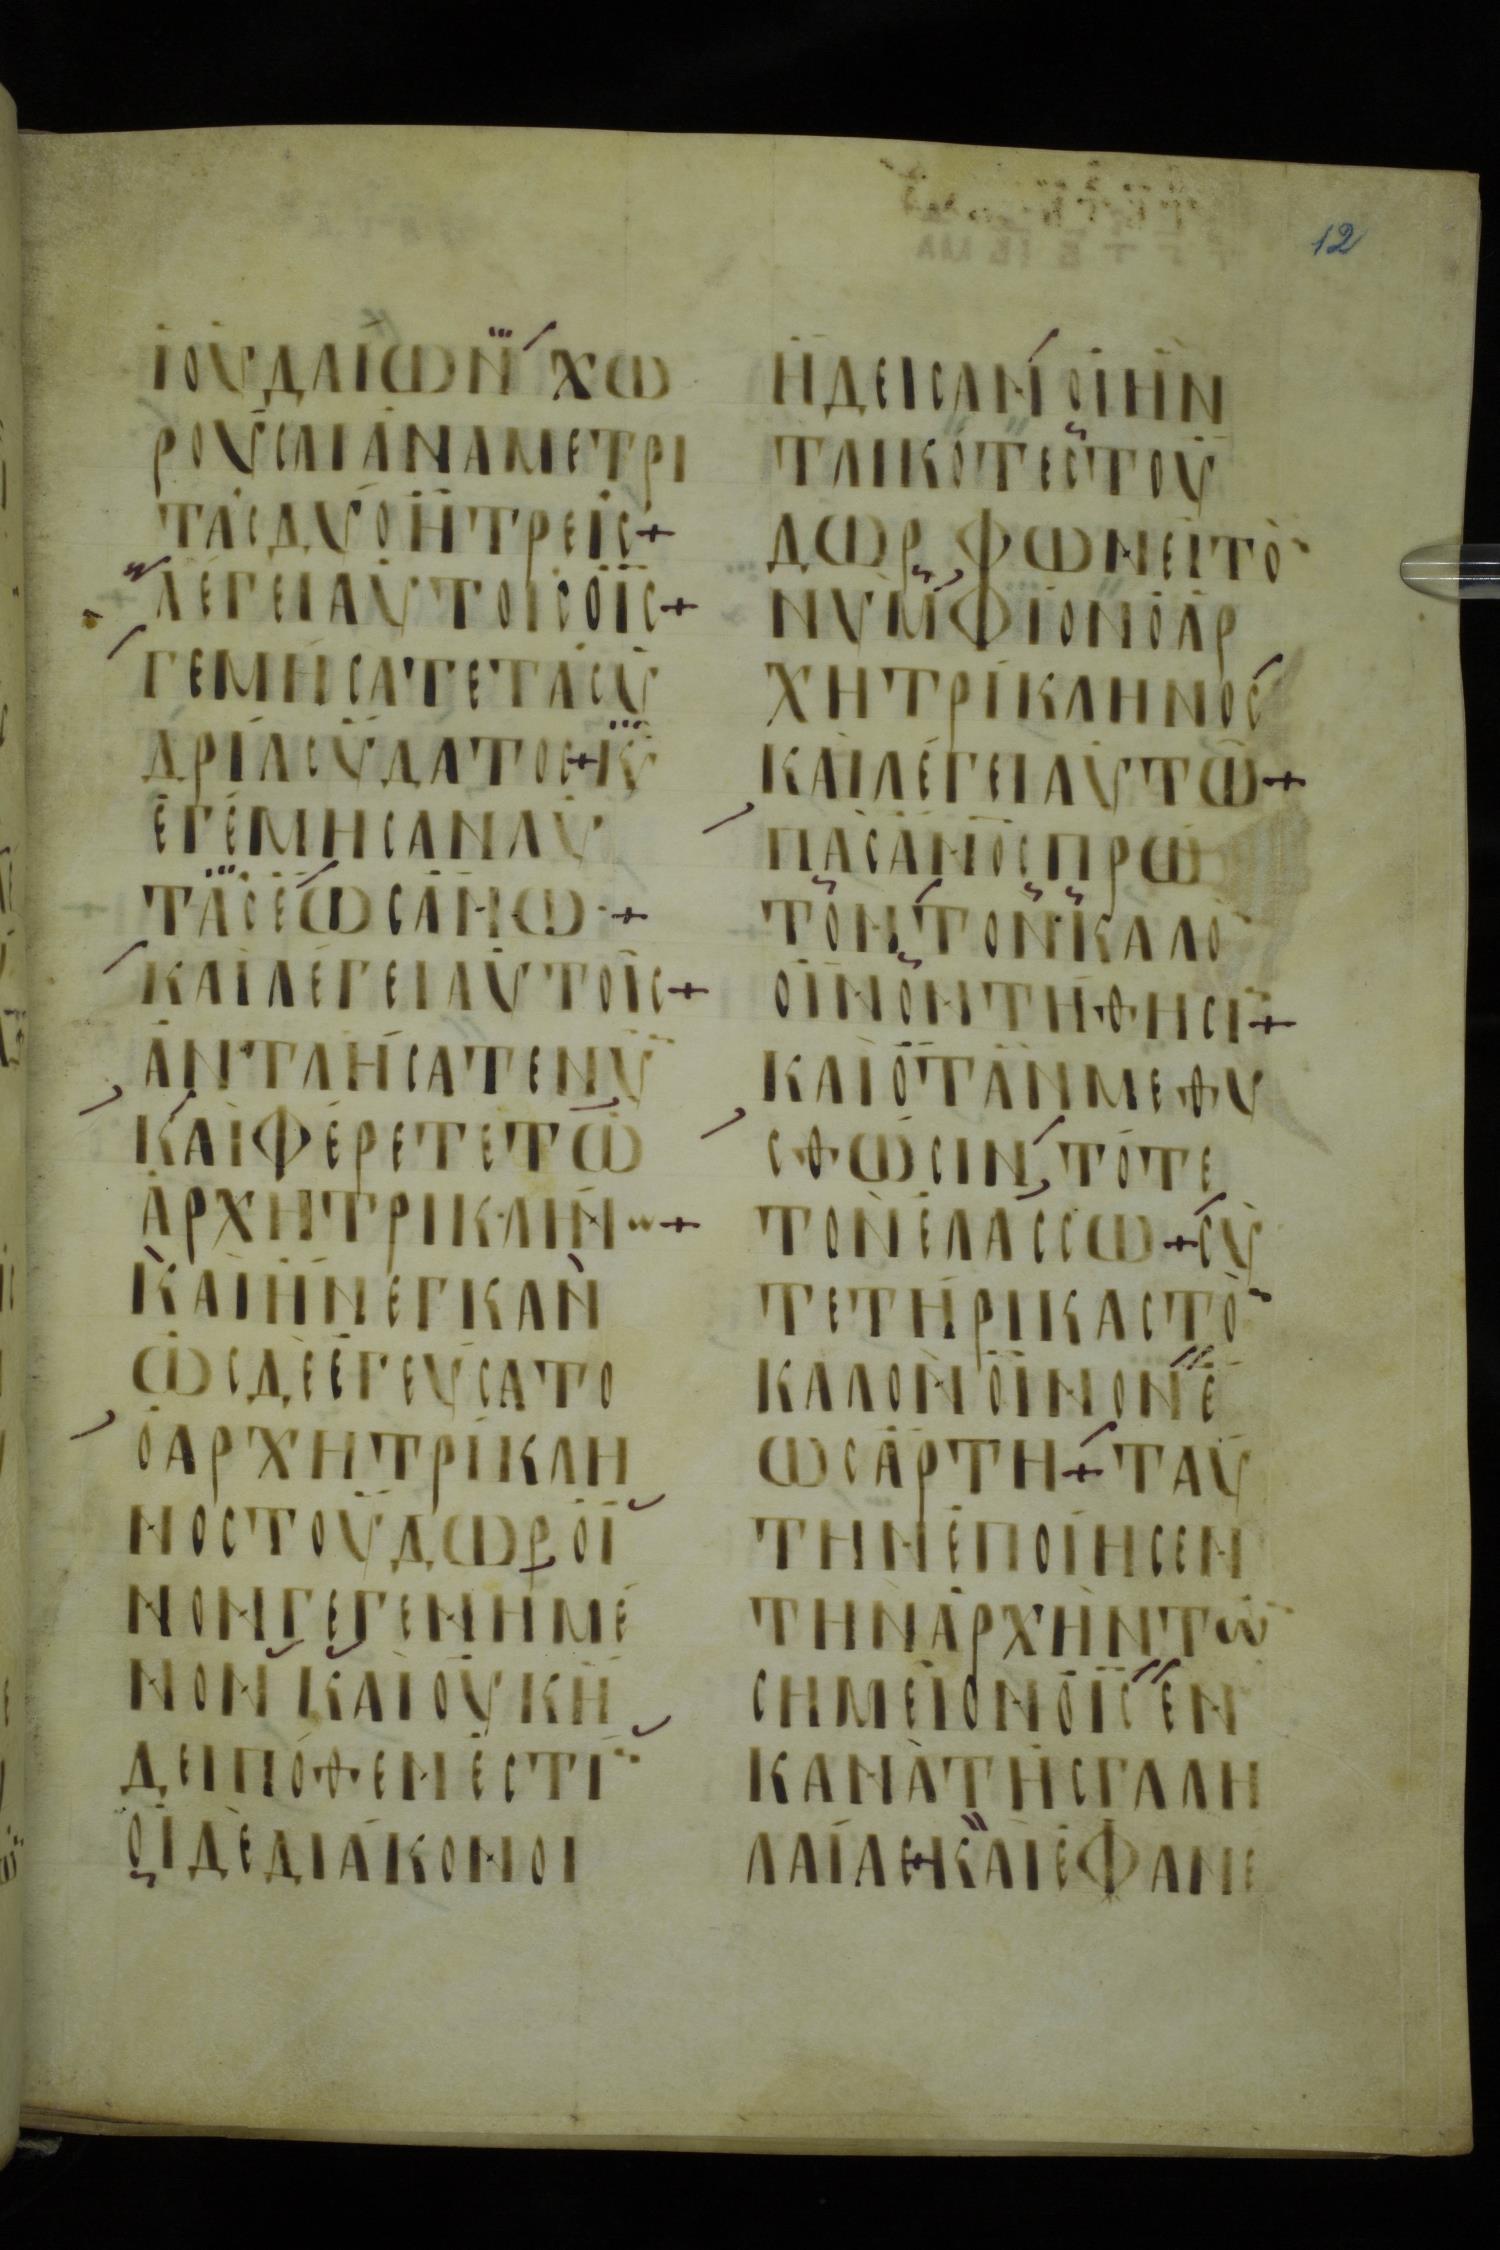 12
ΙΟΥΔΑΙΩΝ ΧΩ
ΡΟΥСΑΙΑΝΑΜΕΤΡΙ
ΤΑСΔΥΟΗΤΡΕΙС+
ΛΕΓΕΙΑΥΤΟΙСΟΙС+
ΓΕΜΗСΑΤΕΤΑСΥ
ΔΡΙΑСΥΔΑΤΟС+Κ̀Υ
ΕΓΕΜΗСΑΝΑΥ
ΤΑСΕΩСΑΝΩ·+
ΚΑΙΛΕΓΕΙΑΥΤΟΙС+
ΑΝΤΛΗСΑΤΕΝΥ
ΚΑΙΦΕΡΕΤΕΤΩ
ΑΡΧΗΤΡΙΚΛΙΝ+
ΚΑΙΗΝΕΓΚΑΝ
ΩСΔΕΕΓΕΥСΑΤΟ
ΟΑΡΧΗΤΡΙΚΛΗ
ΝΟСΤΟΥΔΩΡΟΙ
ΝΟΝΓΕΓΕΝΗΜΕ
ΝΟΝΚΑΙΟΥΚΗ
ΔΕΙΠΟΘΕΝΕСΤΙ
ΟΙΔΕΔΙΑΚΟΝΟΙ
ΗΔΕΙСΑΝΟΙΗΝ
ΤΛΙΚΟΤΕСΤΟΥ
ΔΩΡ ΦΩΝΕΙΤΟ
ΝΥΜΦΙΟΝΟΑΡ
ΧΗΤΡΙΚΛΗΝΟС
ΚΑΙΛΕΓΕΙΑΥΤΩ+
ΠΑСΑΝΟСΠΡΩ
ΤΟΝΤΟΝΚΑΛΟ
ΟΙΝΟΝΤΗΘΗСΙ+
ΚΑΙΟΤΑΝΜΕΘΥ
СΘΩСΙΝΤΟΤΕ
ΤΟΝΕΛΑССΩ+СΥ
ΤΕΤΗΡΙΚΑСΤΟ
ΚΑΛΟΝΟΙΝΟΝΕ
ΩСΑΡΤΗ+ΤΑΥ
ΤΗΝΕΠΟΙΗСΕΝ
ΤΗΝΑΡΧΗΝΤΩ
СΗΜΕΙΟΝΟΙСΕΝ
ΚΑΝΑΤΗСΓΑΛΗ
ΛΑΙΑС+ΚΑΙΕΦΑΝΕ